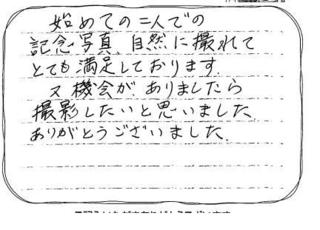 始めての二人での
記念写真、自然に撮れて
とても満足しております。
又機会がありましたら
撮影したいと思いました。
ありがとうございました。